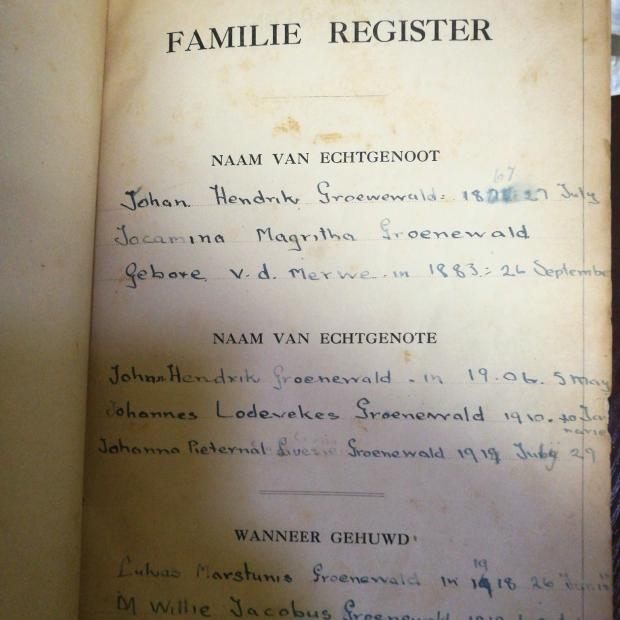 FAMILIE REGISTER
NAAM VAN ECHTGENOOT
67
Johan Hendrik Groewewald: 18 27 July
Jocamina Magritha Groenewald
Gebore v.d. Merwe in 1883: 26 September
NAAM VAN ECHTGENOTE
Hendrik Groenewald - in 19.06. 5 May
Johannes Lodevekes Groenewald 1910. Ja
narie
Johanna Pieternal Groenewald July 29
WANNEER GEHUWD
19
Lukas Marstunis Groenewald in 18 26
M Willie Jacobus Groenewald